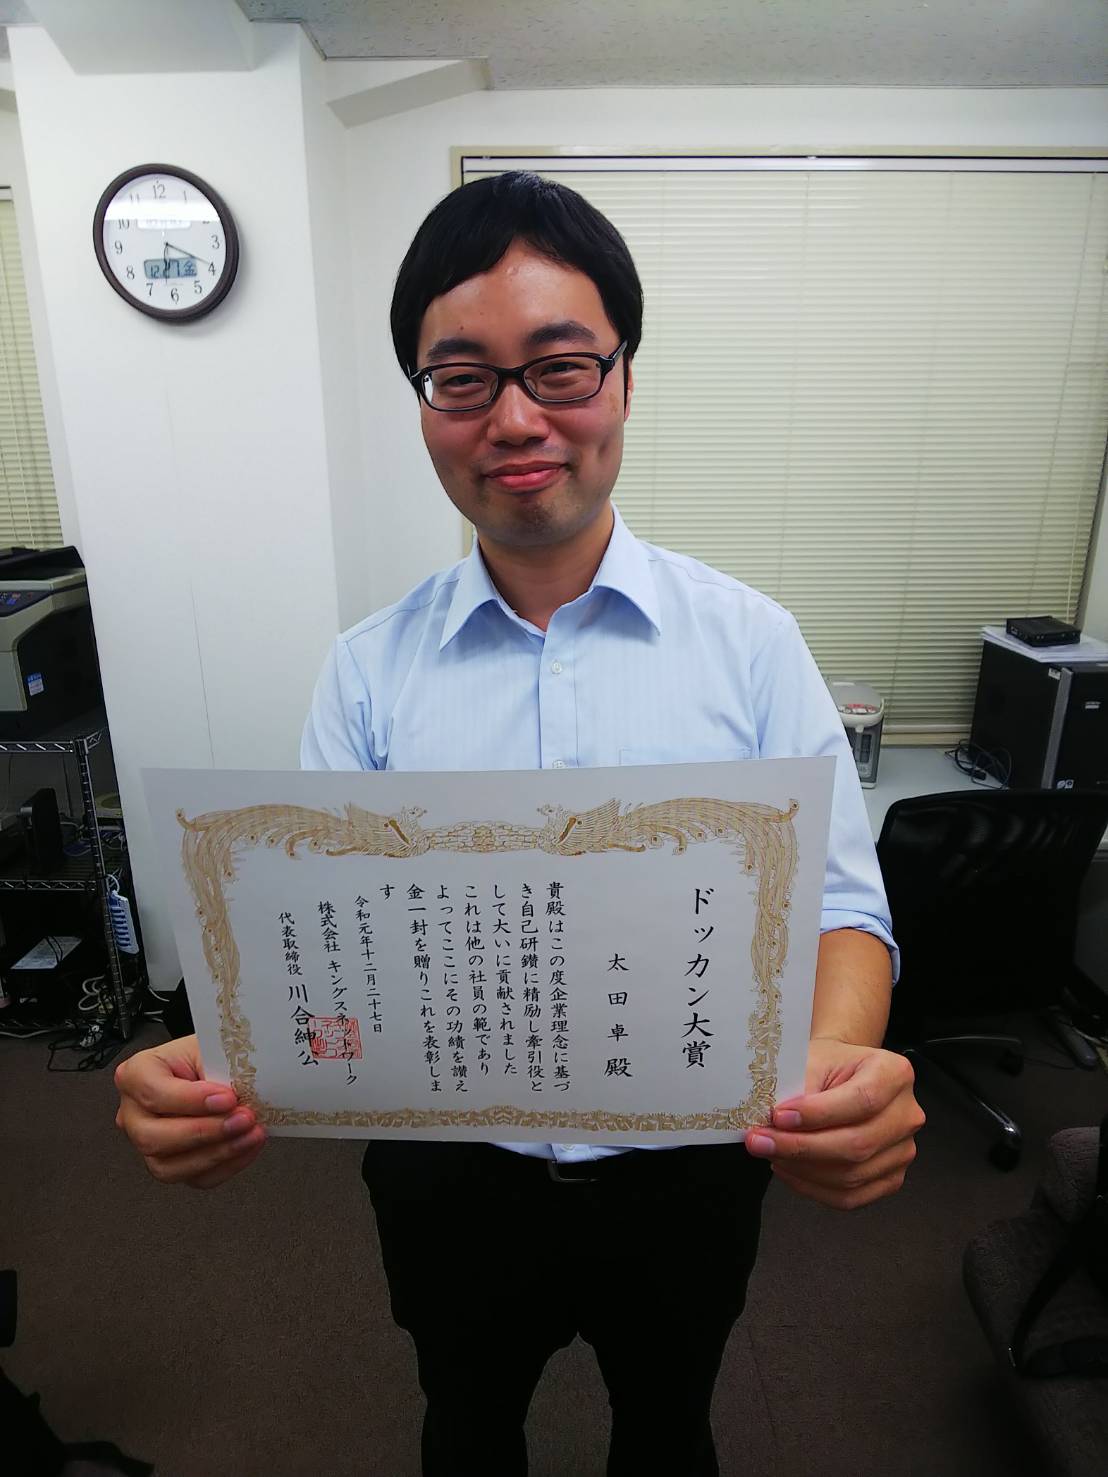 ドッカン大賞
太田卓 殿
貴殿はこの度企業理念に基づ
き自己研鑽に精励し牽引役と
して大いに貢献されました
これは他の社員の範であり
よってここにその功績を讃え
金一封を贈りこれを表彰しま
す
令和元年十二月二十七日
株式会社 キングスネットワーク
代表取締役 川合紳公
12
1
2
3
4
5
6
7
8
9
10
11
12.27 金